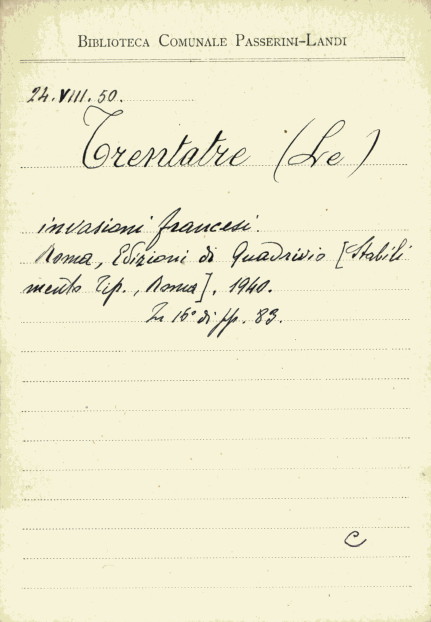 BIBLIOTECA COMUNALE PASSERINI-LANDI
24.VIII.50.
Trentatre (Le)
invasioni francesi.
Roma, Edizioni di Quadrivio [Stabili
mento Tip., Roma], 1940.
In 16° di pp. 83.
C